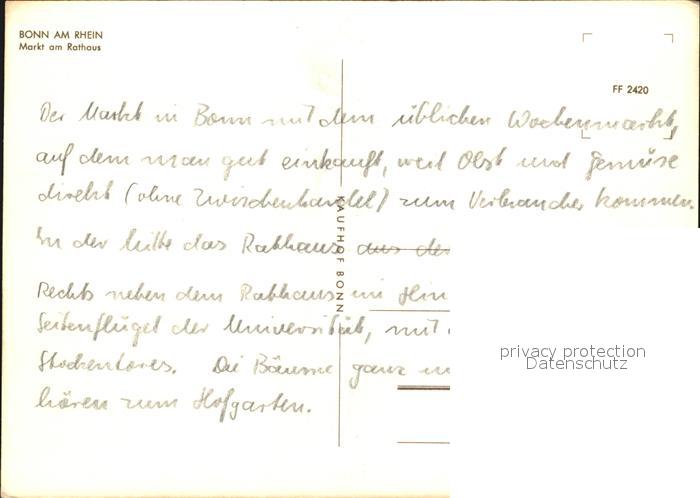 BONN AM RHEIN
Markt am Rathaus
FF 2420
Der Markt in Bonn mit dem üblichen Wochenmarkt,
auf dem man gut einkauft, weil Obst und Gemüse
direkt (ohne Zwischenhandel) zum Verbraucher kommen.
In der Mitte das Rathaus aus der
Rechts neben dem Rathaus im Hin
Seitenflügel der Universität, mit
Stockentores. Die Bäume ganz
hören zum Hofgarten.
KAUFHOF BONN
privacy protection
Datenschutz